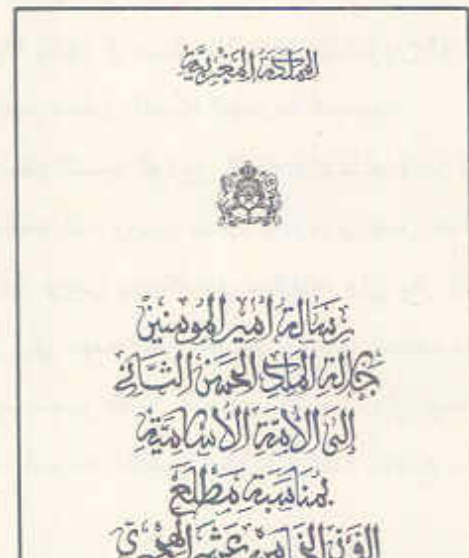 المملكة المغربية
رسالة أمير المومنين
جلالة الملك الحسن الثاني
إلى الأمة الإسلامية
بمناسبة مطلع
القرن الخامس عشر الهجري